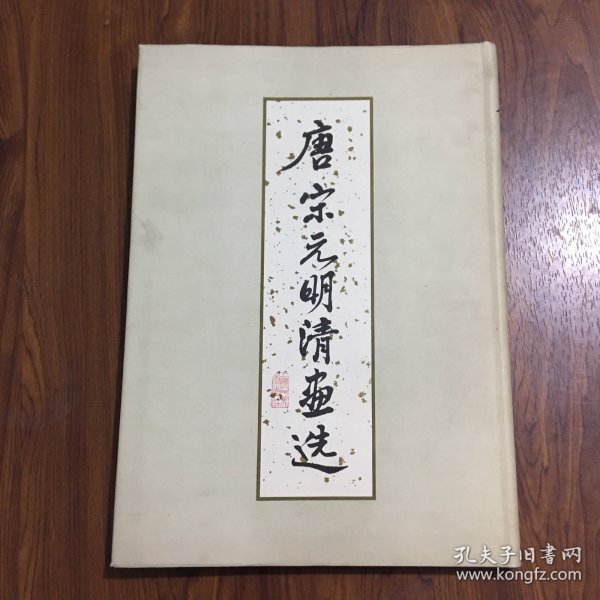 唐宋元明清画选
孔夫子旧書网
www.kongfz.com